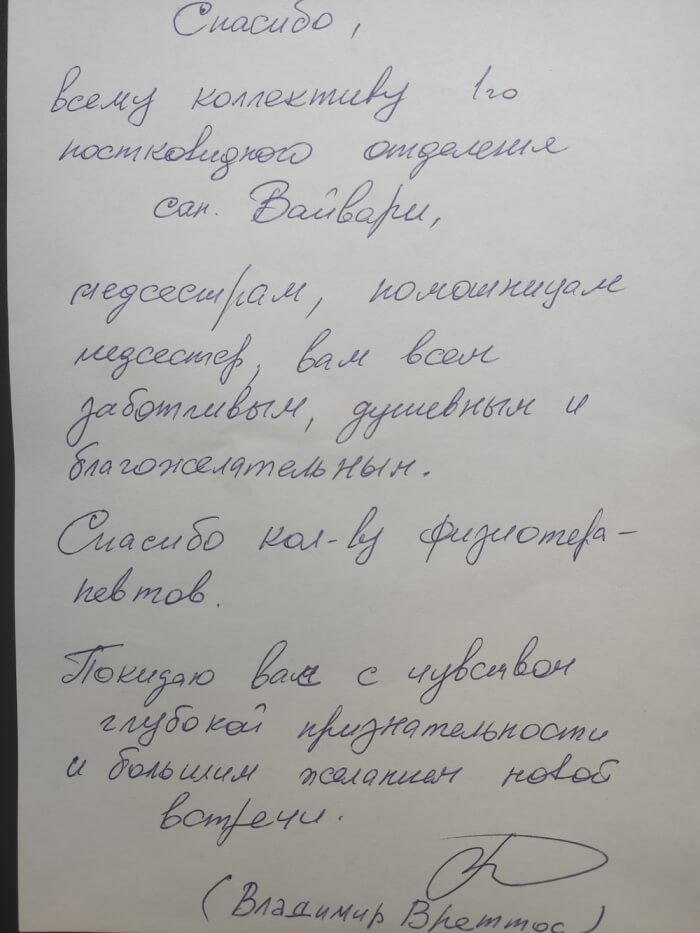 Спасибо,
всему коллективу 1го
постковидного отделения
сан. Вайвари,
медсестрам, помошницам
медсестер, вам всем
заботливым, душевным и
благожелательным.
Спасибо кол-ву физиотера-
певтов.
Покидаю вас с чувством
глубокой признательности
и большим желанием новой
встречи.
(Владимир Вреттос)